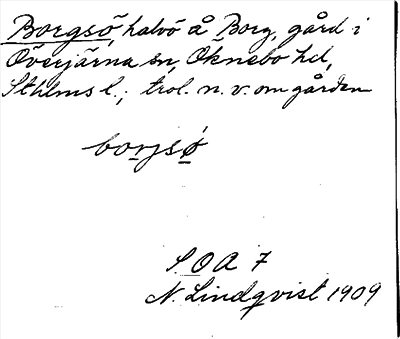 Borgsö, halvö å Borg, gård i
Överjärna sn, Öknebo hd,
Sthlms l.; trol. n. v. om gården
borjsö
S O A 7
N. Lindqvist 1909